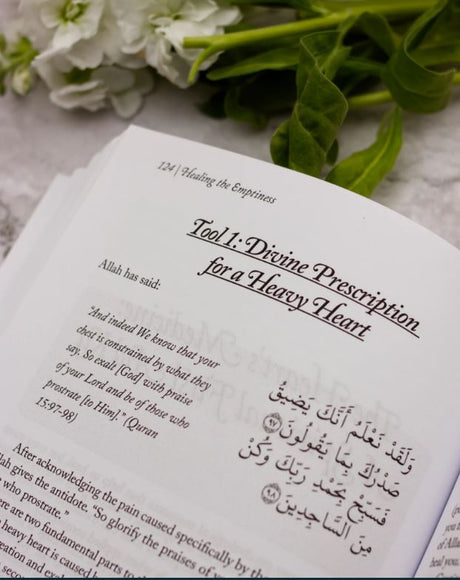 124 | Healing the Emptiness
Tool 1: Divine Prescription
for a Heavy Heart
Allah has said:
"And indeed We know that your
chest is constrained by what they
say. So exalt [God] with praise
of your Lord and be of those who
prostrate [to Him]." (Quran
15:97-98)
وَلَقَدْ نَعْلَمُ أَنَّكَ يَضِيقُ
صَدْرُكَ بِمَا يَقُولُونَ ﴿٩٧﴾
فَسَبِّحْ بِحَمْدِ رَبِّكَ وَكُنْ
مِنَ السَّاجِدِينَ ﴿٩٨﴾
After acknowledging the pain caused specifically by the
gives the antidote. "So glorify the praises of
who prostrate."
are two fundamental parts to
heavy heart is caused